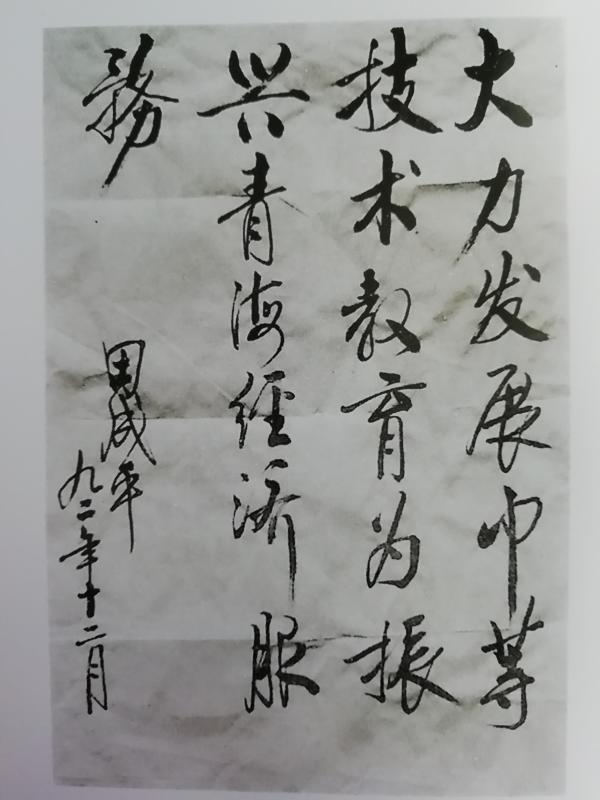 大力发展中等
技术教育为振
兴青海经济服
務
田成平
九二年十二月